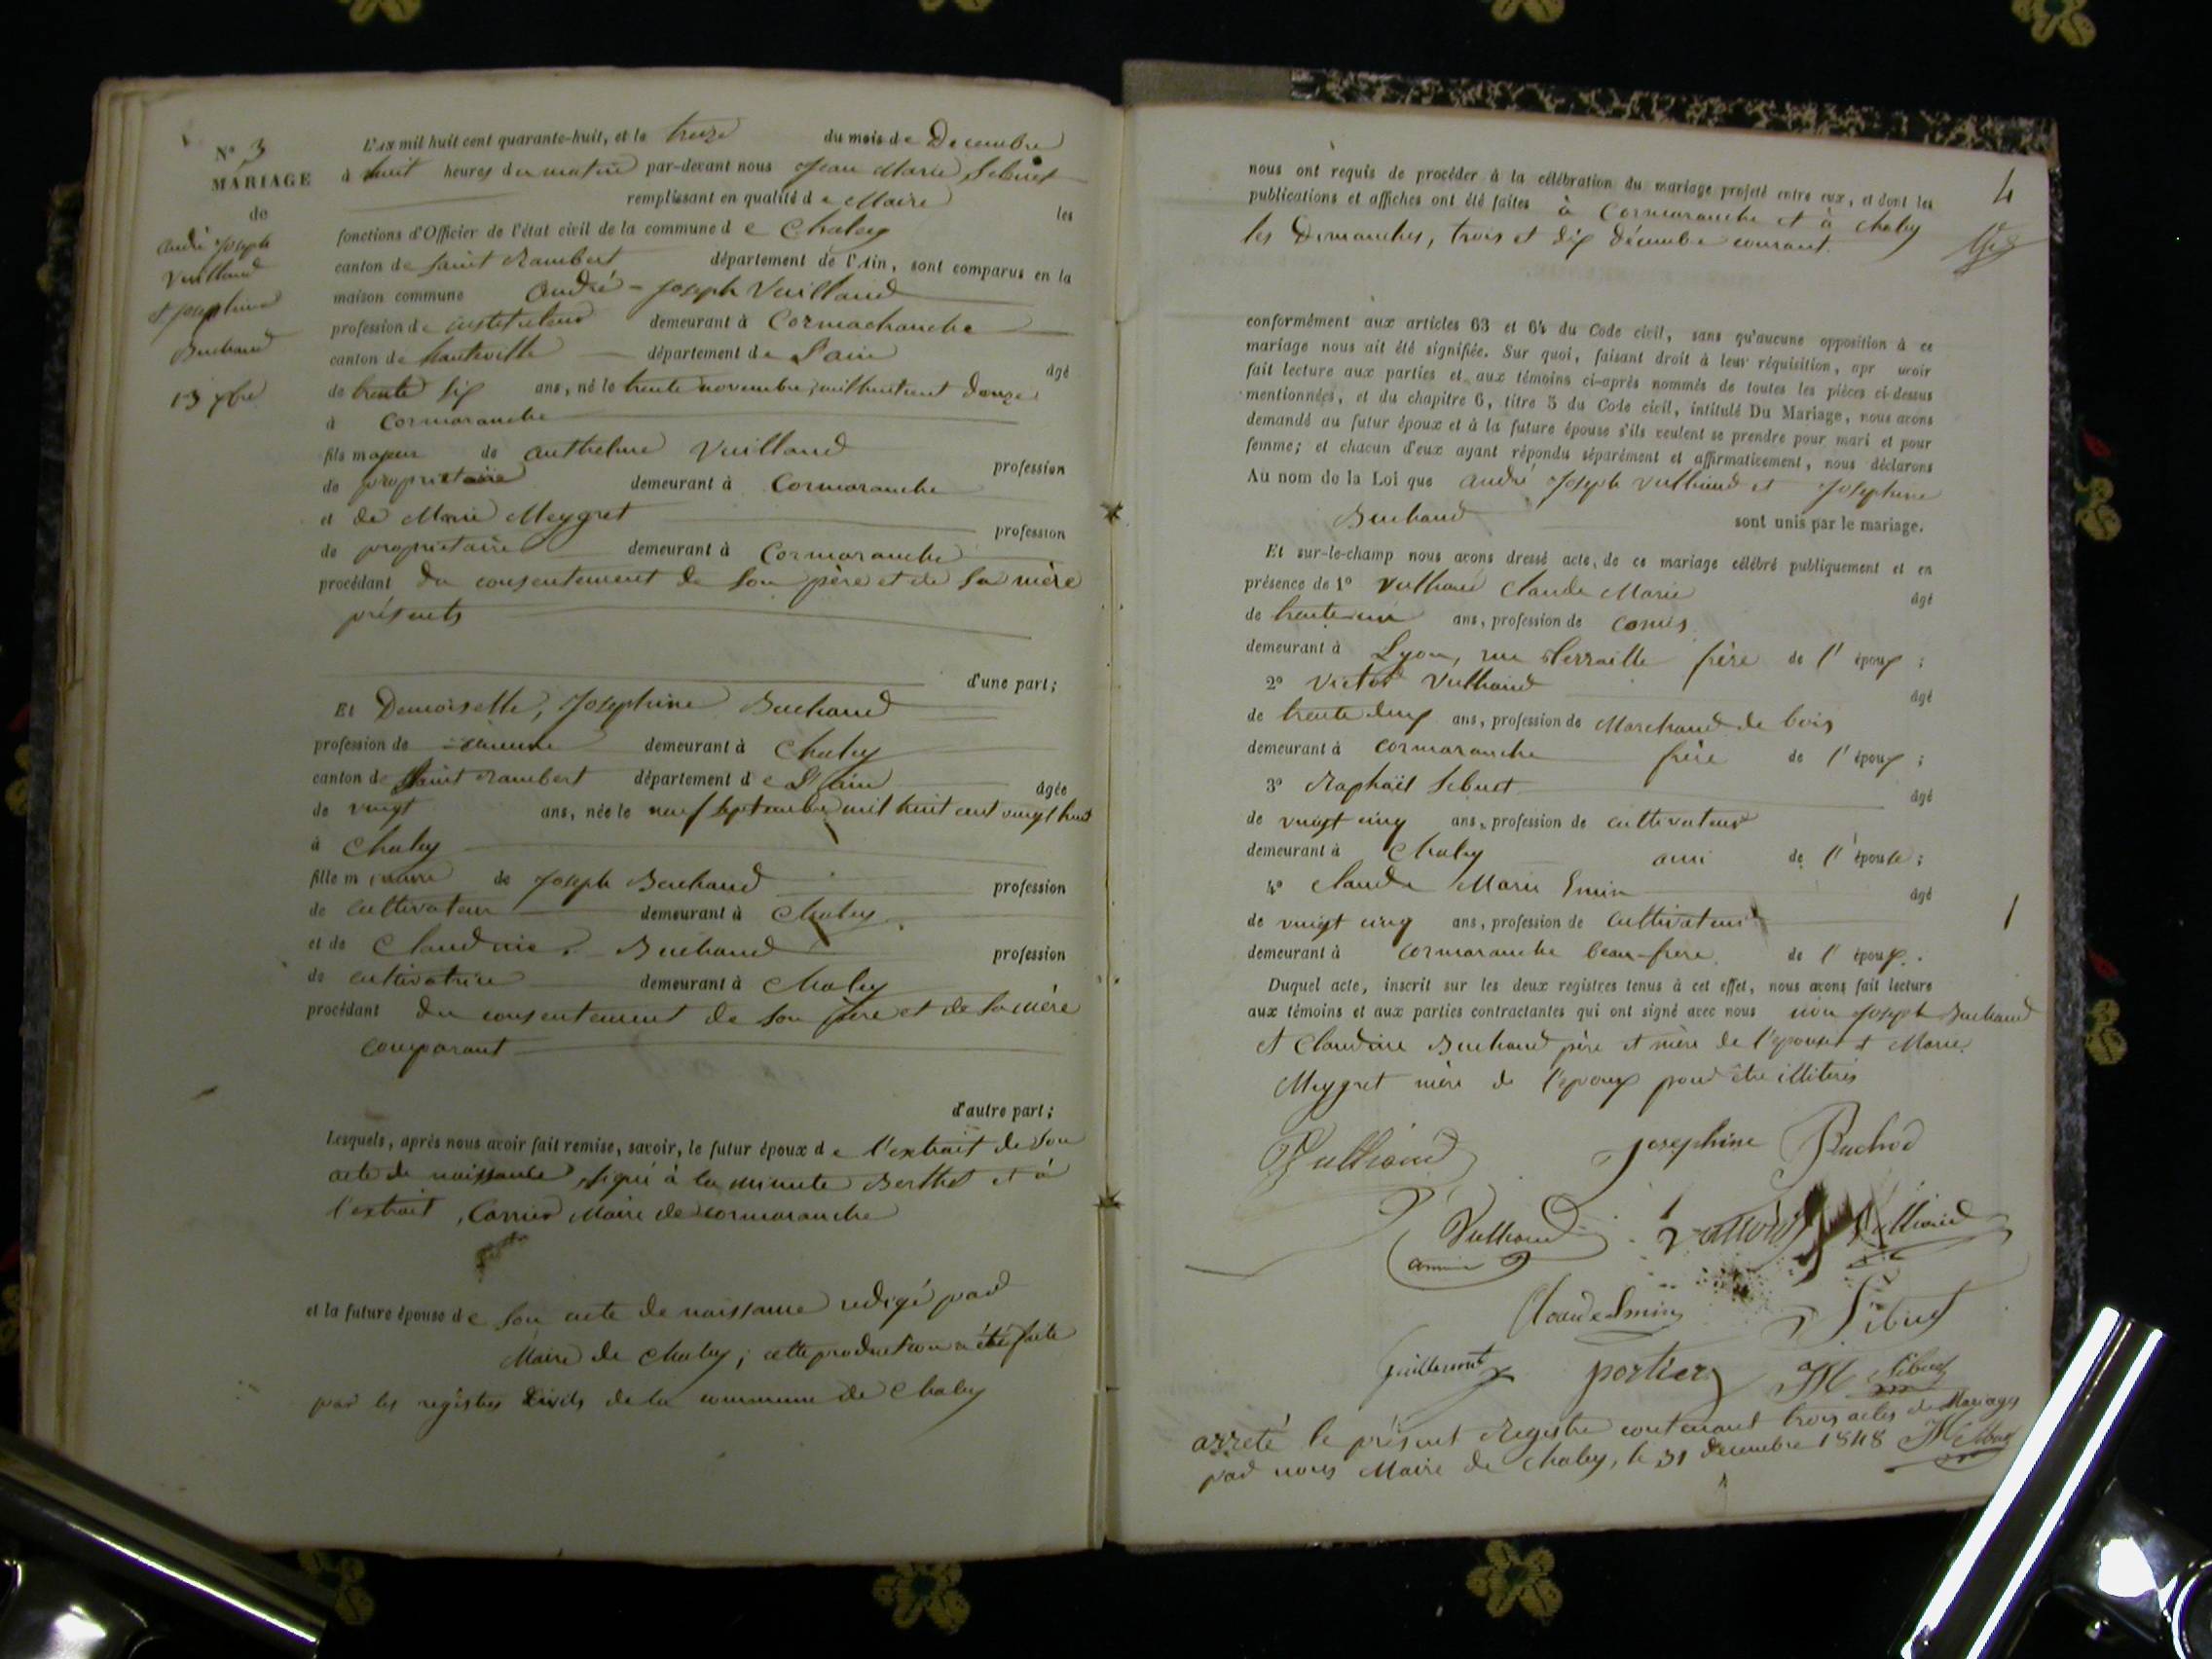 N° 3
MARIAGE
de
André Joseph
Vuilland
et Josephine
Buchaud
13 xbre
L'AN mil huit cent quarante-huit, et le treize du mois de Decembre
à huit heures du matin par-devant nous Jean Marie Sibuet
remplissant en qualité de Maire les
fonctions d'Officier de l'état civil de la commune de Chaley
canton de Saint Rambert département de l'Ain, sont comparus en la
maison commune André-Joseph Vuilland
profession de instituteur demeurant à Cormachanche
canton de hauteville département de L'ain âgé
de trente six ans, né le trente novembre mil huit cent douze
à Cormaranche
fils majeur de Anthelme Vuilland profession
de propriétaire demeurant à Cormaranche
et de Marie Meygret profession
de propriétaire demeurant à Cormaranche
procédant du consentement de son père et de sa mère
présents
d'une part;
Et Demoiselle, Josephine Buchaud
profession de demeurant à Chaley
canton de Saint Rambert département de L'ain âgée
de vingt ans, née le neuf Septembre mil huit cent vingt huit
à Chaley
fille mineure de Joseph Buchaud profession
de cultivateur demeurant à Chaley
et de Claudine Buchaud profession
de cultivatrice demeurant à Chaley
procédant du consentement de son père et de sa mère
comparant
d'autre part;
Lesquels, après nous avoir fait remise, savoir, le futur époux de l'extrait de son
acte de naissance, signé à la minute Berthet et à
l'extrait, Carrier Maire de cormaranche
et la future épouse de son acte de naissance redigé par
Maire de Chaley; cette production a été faite
par les registres civils de la commune de Chaley
4
nous ont requis de procéder à la célébration du mariage projeté entre eux, et dont les
publications et affiches ont été faites à Cormaranche et à Chaley
les Dimanches, trois et dix décembre courant.
conformément aux articles 63 et 64 du Code civil, sans qu'aucune opposition à ce
mariage nous ait été signifiée. Sur quoi, faisant droit à leur réquisition, apr avoir
fait lecture aux parties et aux témoins ci-après nommés de toutes les pièces ci-dessus
mentionnées, et du chapitre 6, titre 5 du Code civil, intitulé Du Mariage, nous avons
demandé au futur époux et à la future épouse s'ils veulent se prendre pour mari et pour
femme; et chacun d'eux ayant répondu séparément et affirmativement, nous déclarons
Au nom de la Loi que André Joseph Vulliaud et Josephine
Buchaud sont unis par le mariage.
Et sur-le-champ nous avons dressé acte, de ce mariage célébré publiquement et en
présence de 1° Vulliaud Claude Marie âgé
de trente un ans, profession de comis
demeurant à Lyon, rue frère de l'époux;
2° Victor Vulliaud âgé
de trente deux ans, profession de Marchand de bois
demeurant à cormaranche frère de l'époux;
3° Raphaël Sibuet âgé
de vingt cinq ans, profession de cultivateur
demeurant à Chaley ami de l'épouse;
4° Claude Marie Emin âgé
de vingt cinq ans, profession de cultivateur
demeurant à cormaranche beau-frère de l'époux.
Duquel acte, inscrit sur les deux registres tenus à cet effet, nous avons fait lecture
aux témoins et aux parties contractantes qui ont signé avec nous non Joseph Buchaud
et Claudine Buchaud père et mère de l'épouse et Marie
Meygret mère de l'époux pour être illiterés
Vulliaud Josephine Buchod
Vulliaud Vulliaud
Claude Emin Sibuet
Guillermet portier JM Sibuet
arreté le présent Registre contenant trois actes de Mariages
par nous Maire de Chaley, le 31 decembre 1848 JM Sibuet